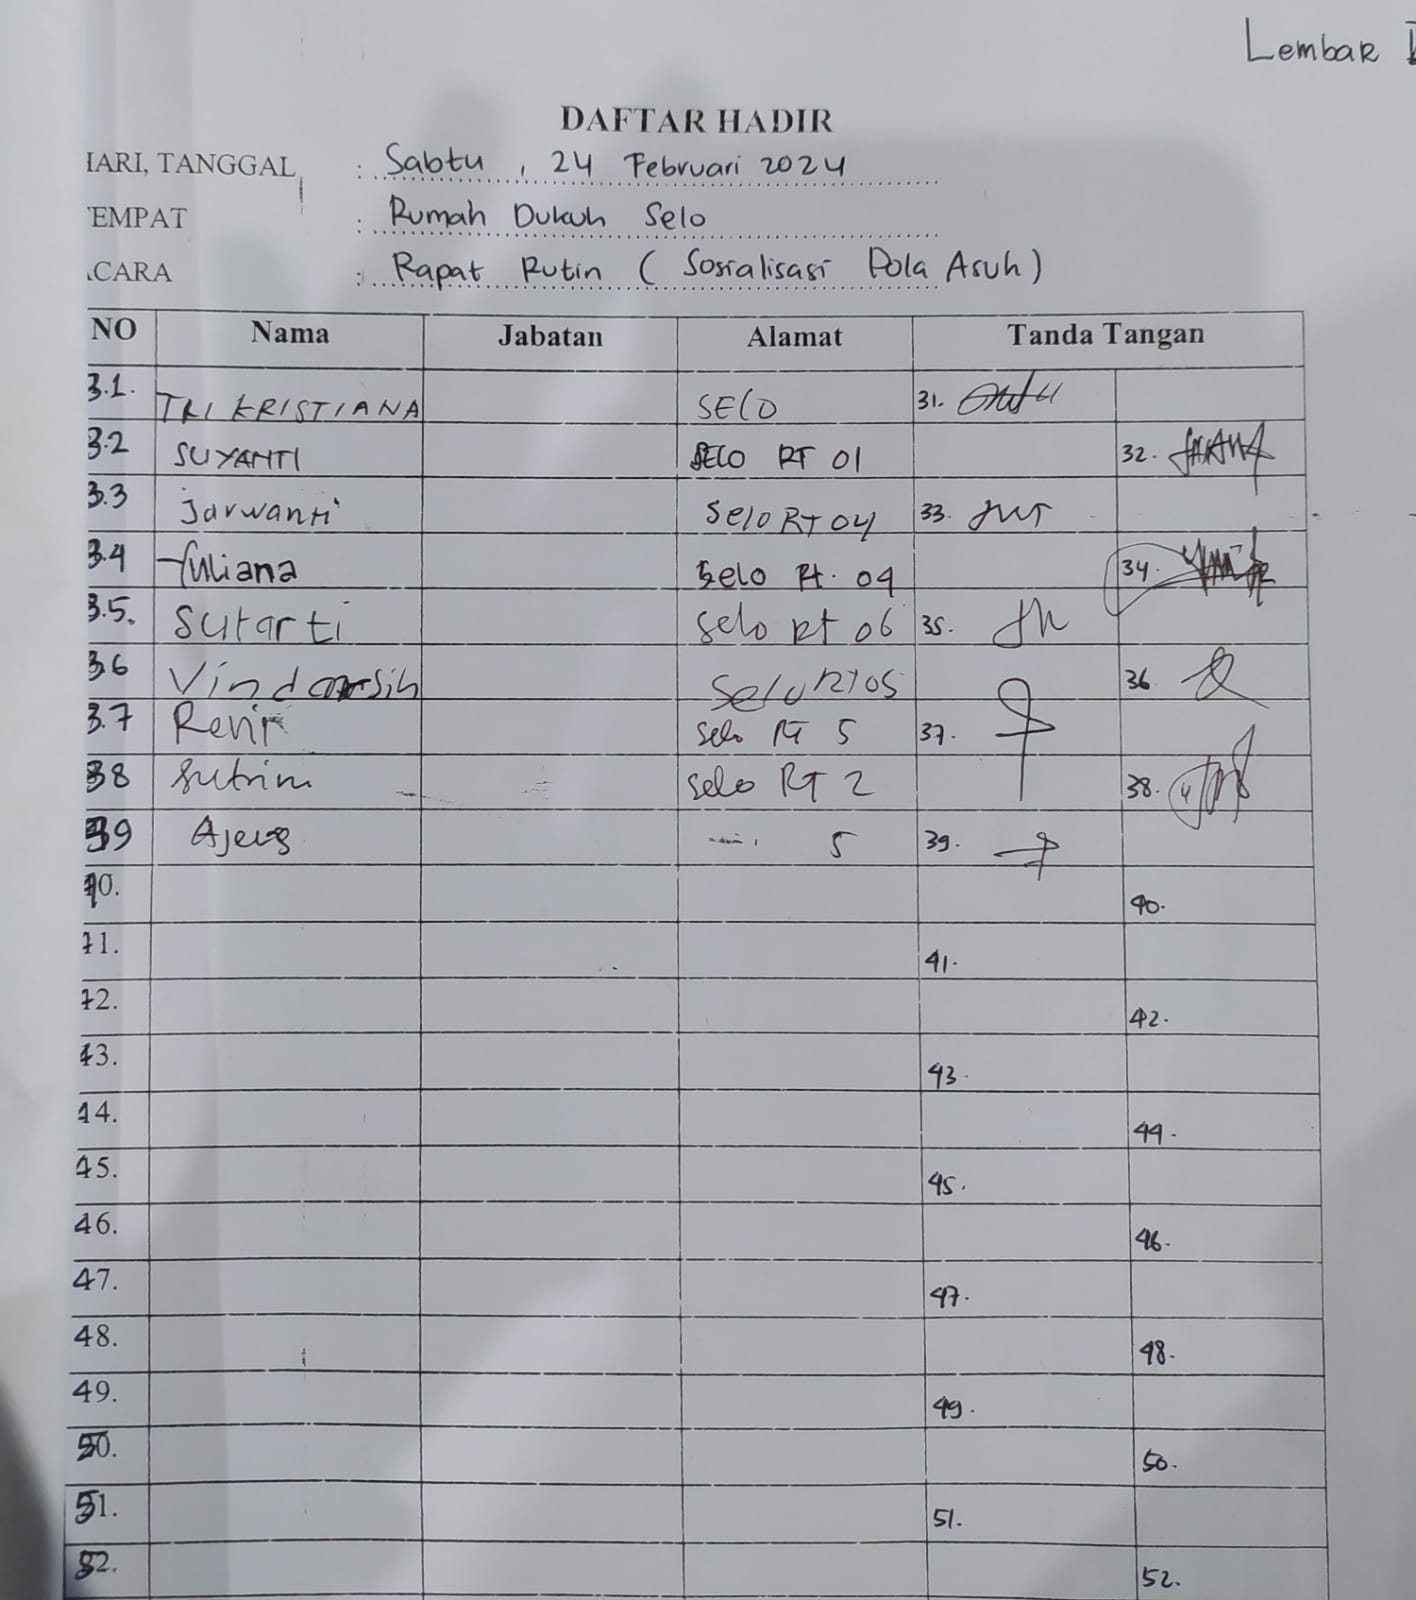 Lembar
DAFTAR HADIR
HARI, TANGGAL : Sabtu, 24 Februari 2024
TEMPAT : Rumah Dukuh Selo
ACARA : Rapat Rutin (Sosialisasi Pola Asuh)
NO Nama Jabatan Alamat Tanda Tangan
31. TRI KRISTIANA SELO 31.
32 SUYANTI SELO RT 01 32.
33 Jarwanti Selo RT 04 33.
34 Yuliana Selo Rt. 04 34.
35. Sutarti Selo Rt 06 35.
36 Selo RT 05 36.
37 Selo RT 5 37.
38 Sutrini Selo RT 2 38.
39 Ajeng 5 39.
40. 40.
41. 41.
42. 42.
43. 43.
44. 44.
45. 45.
46. 46.
47. 47.
48. 48.
49. 49.
50. 50.
51. 51.
52. 52.